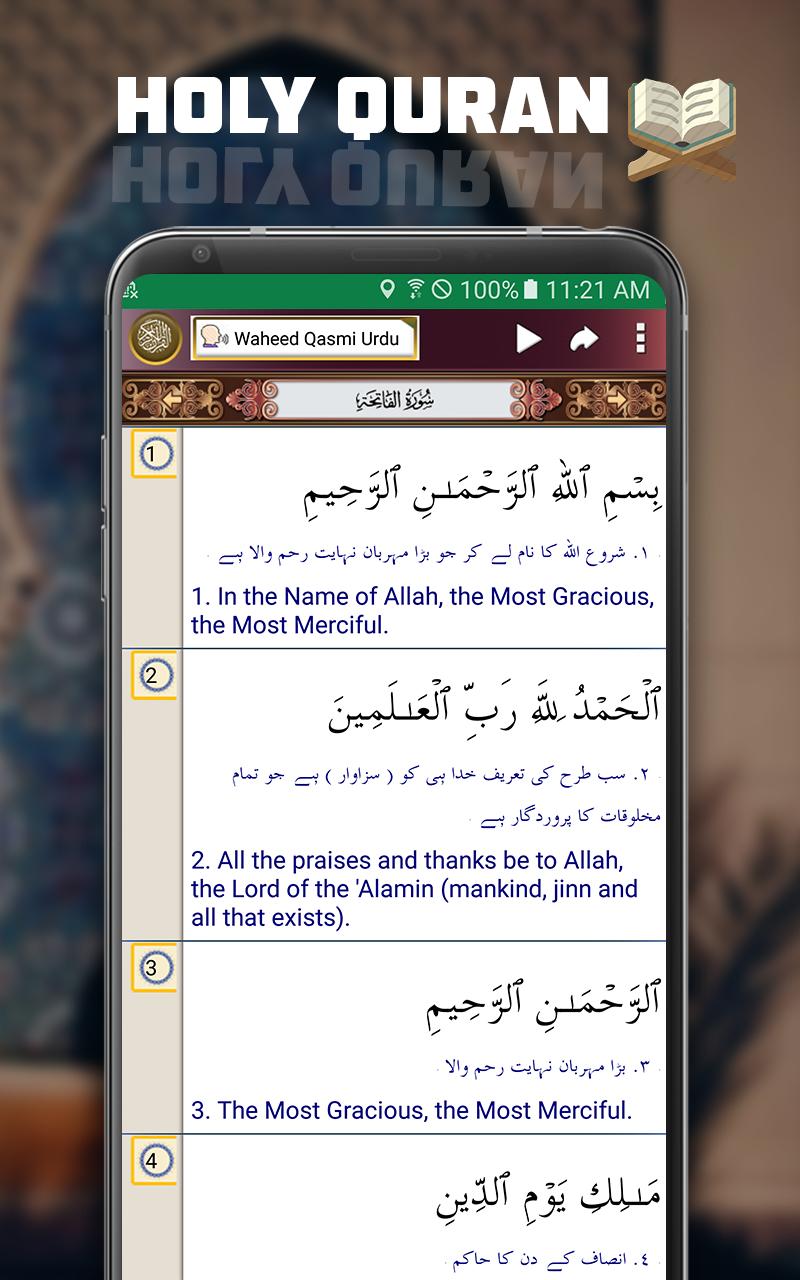 HOLY QURAN
100% 11:21 AM
Waheed Qasmi Urdu
سُورَةُ الفَاتِحَةِ
1
بِسْمِ ٱللَّهِ ٱلرَّحْمَـٰنِ ٱلرَّحِيمِ
١. شروع الله کا نام لے کر جو بڑا مہربان نہایت رحم والا ہے
1. In the Name of Allah, the Most Gracious,
the Most Merciful.
2
ٱلْحَمْدُ لِلَّهِ رَبِّ ٱلْعَـٰلَمِينَ
٢. سب طرح کی تعریف خدا ہی کو ( سزاوار ) ہے جو تمام
مخلوقات کا پروردگار ہے
2. All the praises and thanks be to Allah,
the Lord of the 'Alamin (mankind, jinn and
all that exists).
3
ٱلرَّحْمَـٰنِ ٱلرَّحِيمِ
٣. بڑا مہربان نہایت رحم والا
3. The Most Gracious, the Most Merciful.
4
مَـٰلِكِ يَوْمِ ٱلدِّينِ
٤. انصاف کے دن کا حاکم